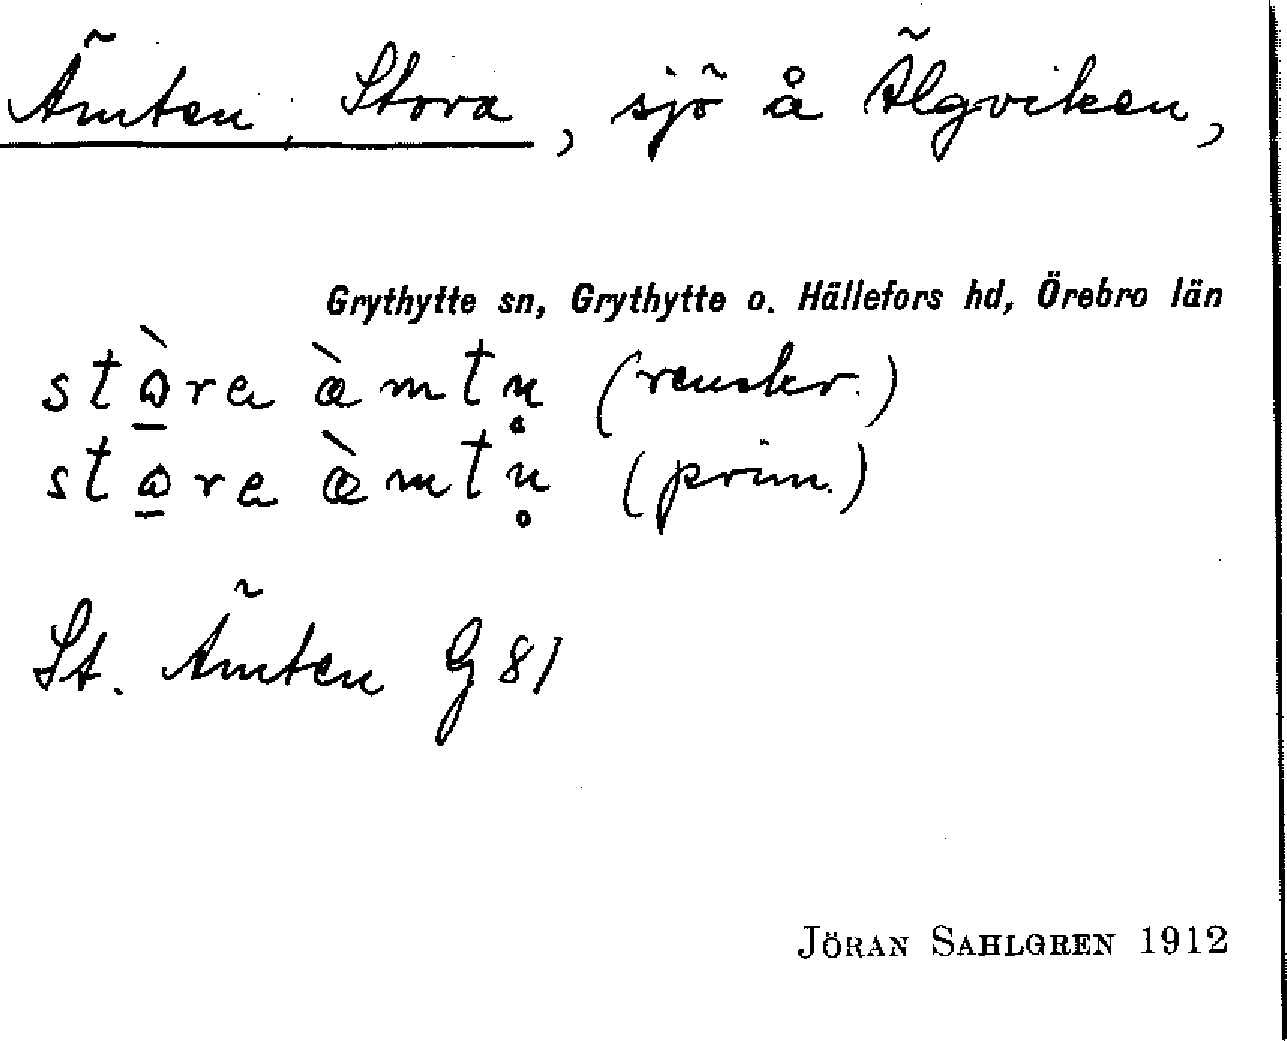 Ämten, Stora, sjö å Älgviken,
Grythytte sn, Grythytte o. Hällefors hd, Örebro län
stɷ̠̀ra æ̀mtn̥ (renskr.)
stɷ̠ra æ̀mtn̥ (prim.)
St. Ämten G 81
JÖRAN SAHLGREN 1912